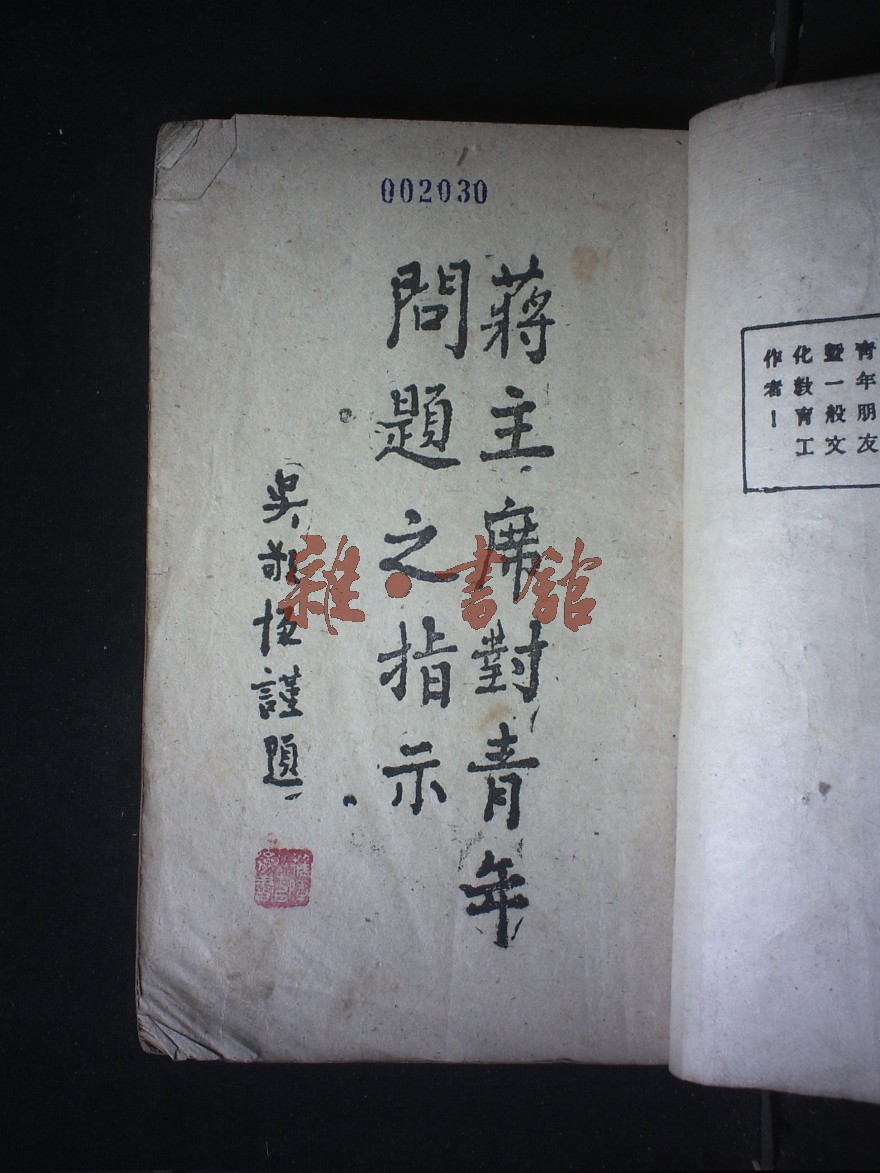 002030
蔣主席對青年
問題之指示
吳敬恆謹題
雜·書館
青年朋友
暨一般文
化敎育工
作者！